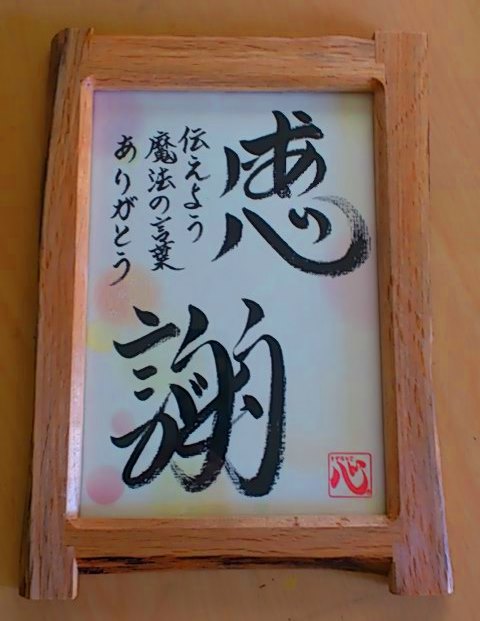 感謝
伝えよう
魔法の言葉
ありがとう
心